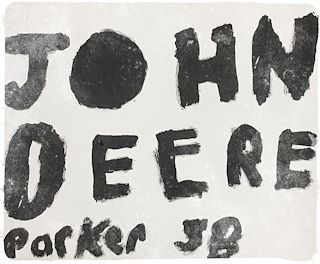 JOHN
DEERE
Parker JB